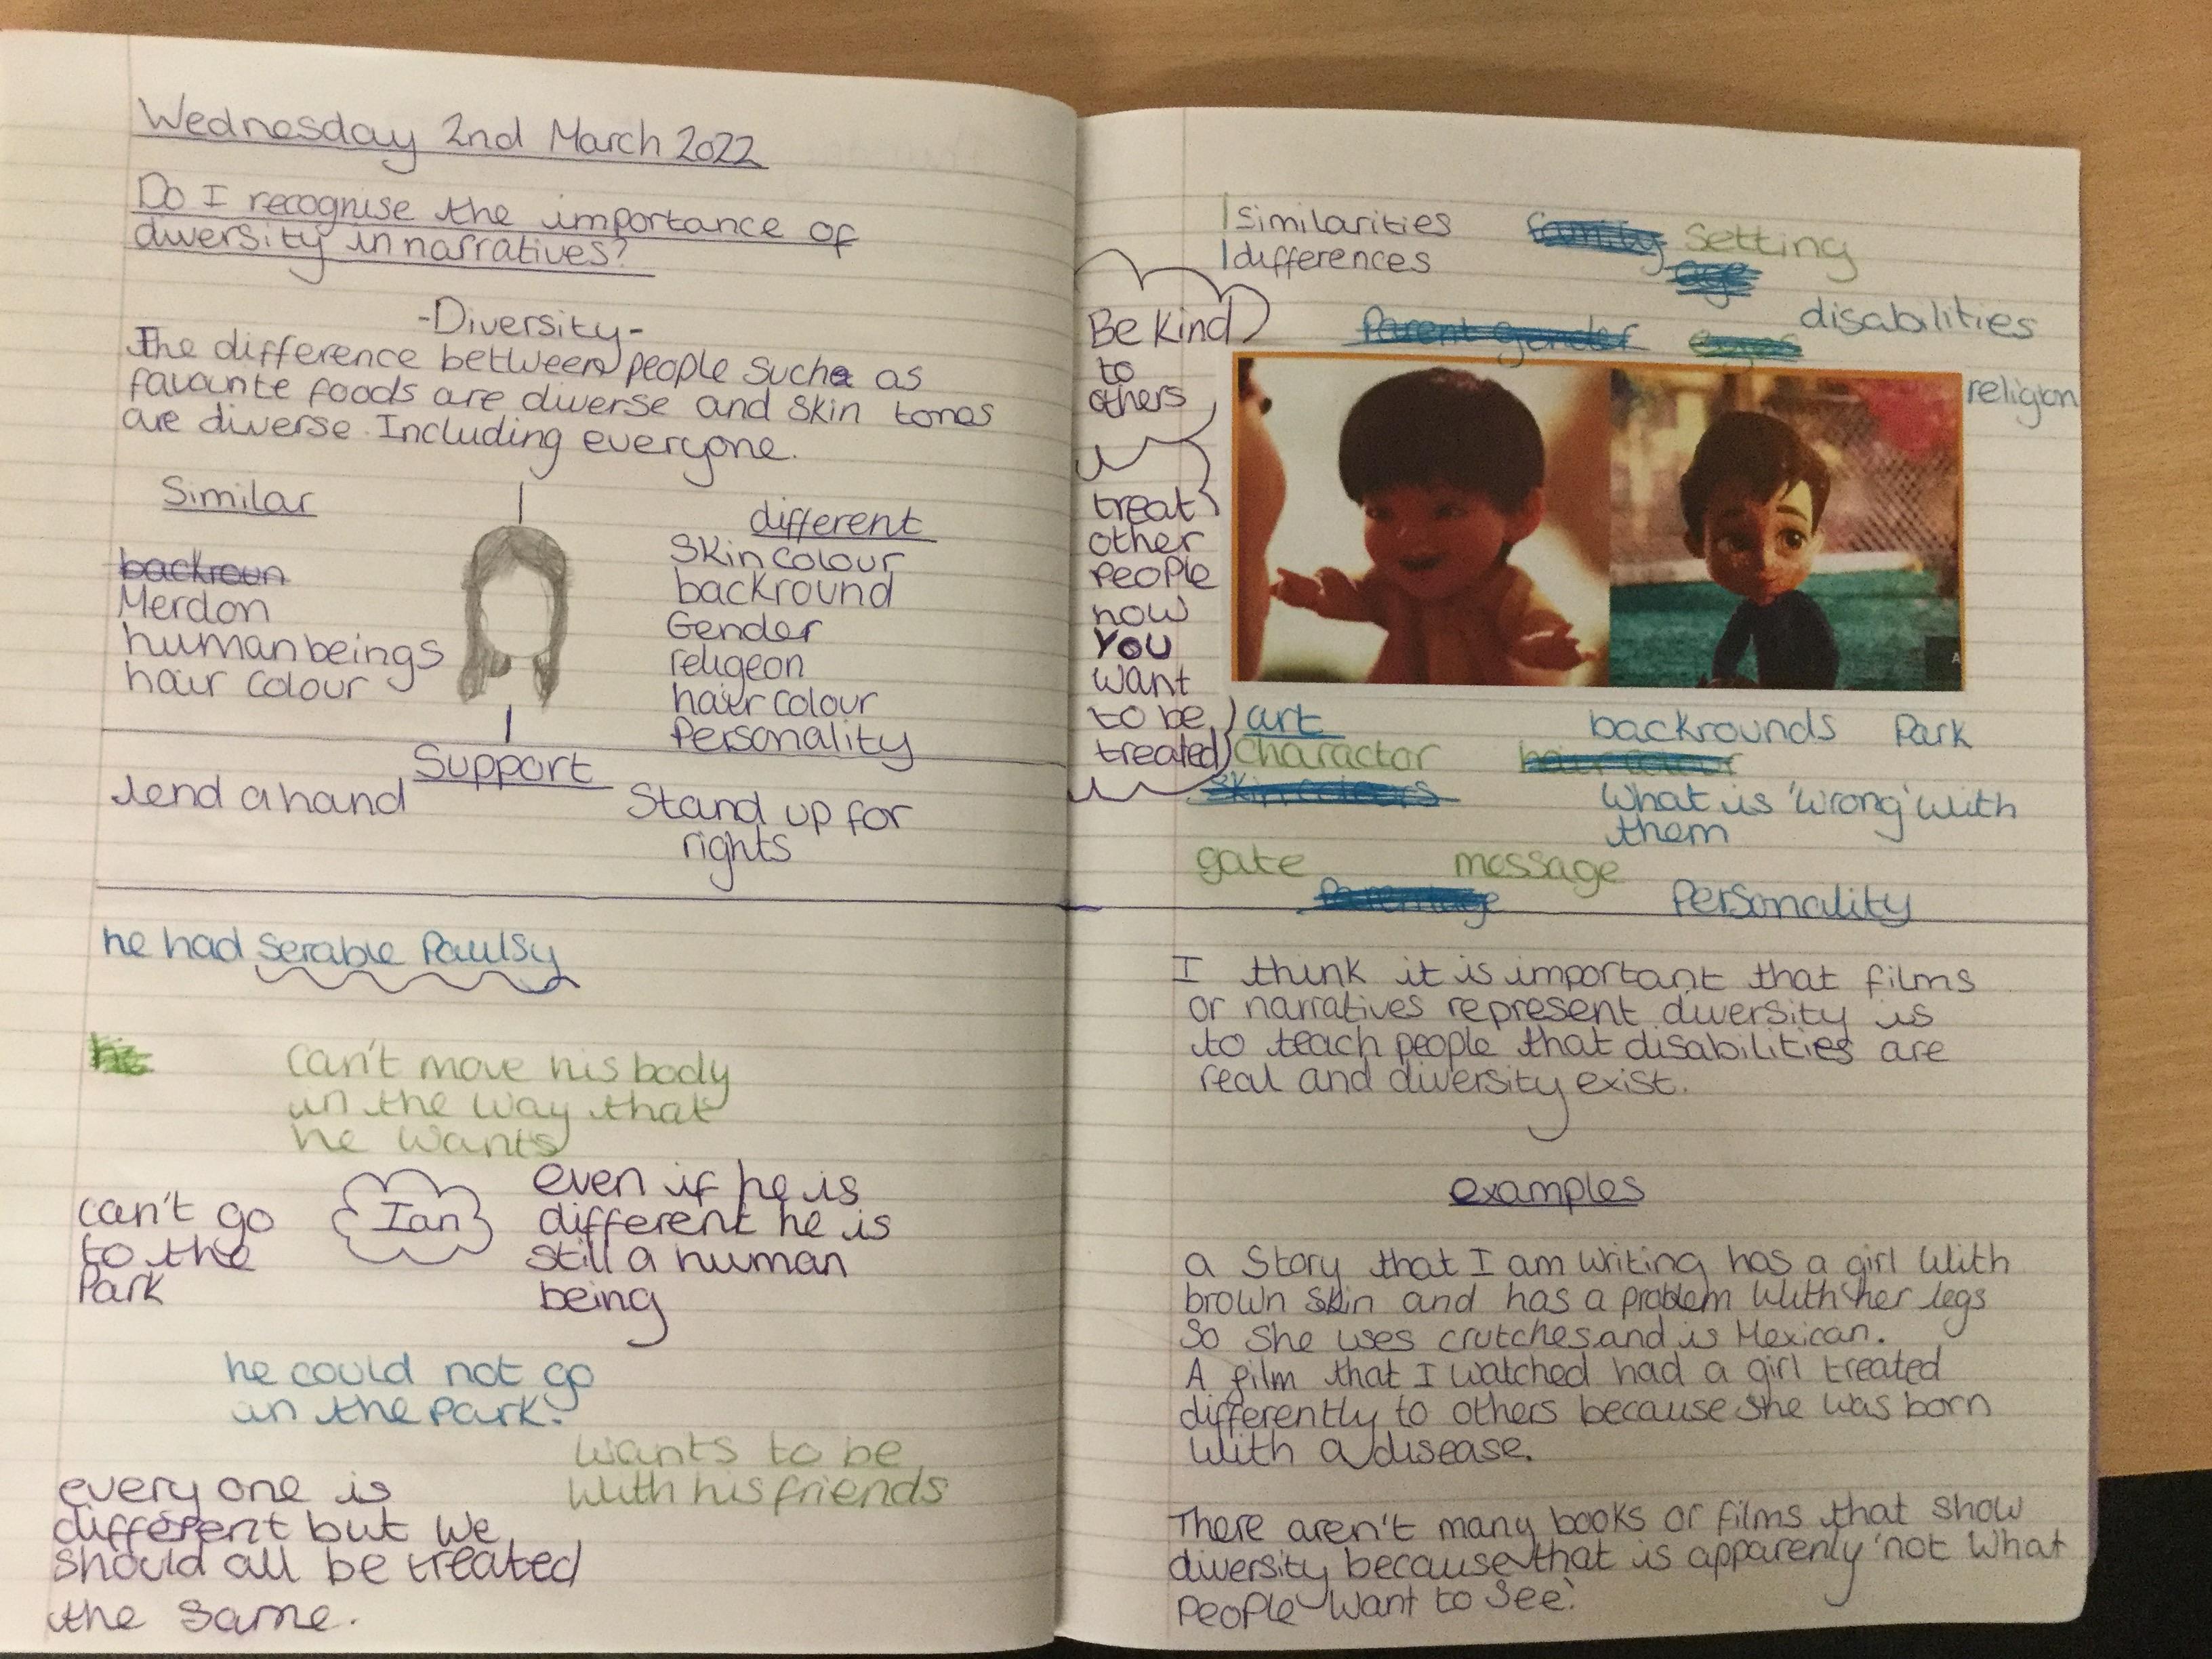 Wednesday 2nd March 2022
Do I recognise the importance of
diversity in narratives?
-Diversity-
The difference between people such as
favourite foods are diverse and skin tones
are diverse. Including everyone.
Similar
backroun
Merdon
human beings
hair colour
different
Skin colour
backround
Gender
religeon
hair colour
Personality
Support
lend a hand
Stand up for
rights
he had serable Paulsy
he
can't move his body
in the way that
he wants
can't go
to the
Park
Ian
even if he is
different he is
still a human
being
he could not go
in the park.
wants to be
with his friends
every one is
different but we
should all be treated
the same.
Be kind
to
others
treat
other
people
how
you
want
to be
treated
similarities
differences
family
setting
age
disabilities
Parent gender
eyes
religion
A
art
backrounds
Park
Charactor
hair colour
skin colours
What is 'wrong' with
them
gate
message
Personality
I think it is important that films
or narratives represent diversity is
to teach people that disabilities are
real and diversity exist.
examples
a Story that I am writing has a girl with
brown skin and has a problem with her legs
So she uses crutches and is Mexican.
A film that I watched had a girl treated
differently to others because she was born
with a disease.
There aren't many books or films that show
diversity because that is apparenly 'not what
People want to see.'